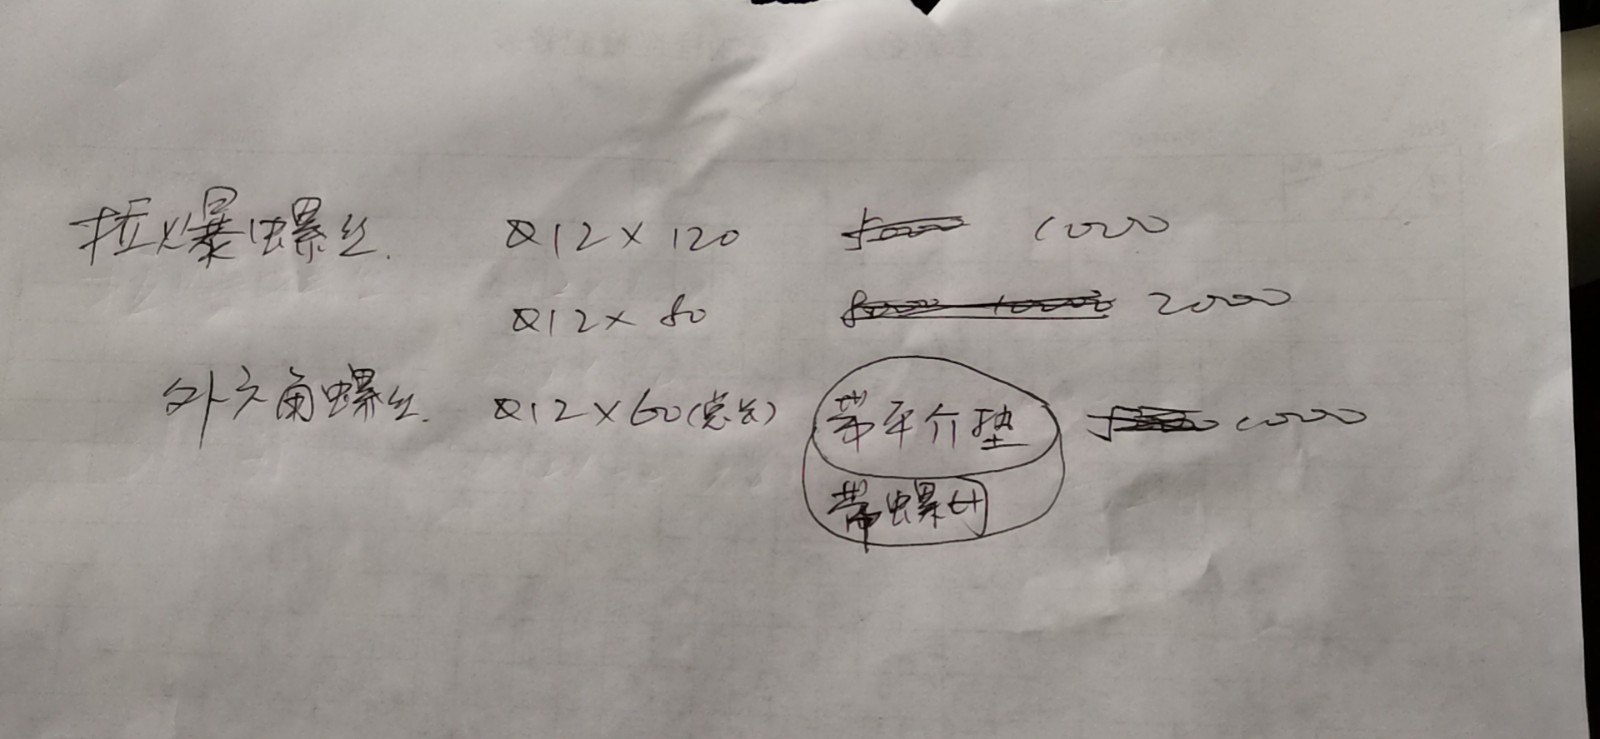 拉爆螺丝. Φ12×120 1000
Φ12×80 2000
外六角螺丝. Φ12×60(总长) 带平介垫 1000
带螺母